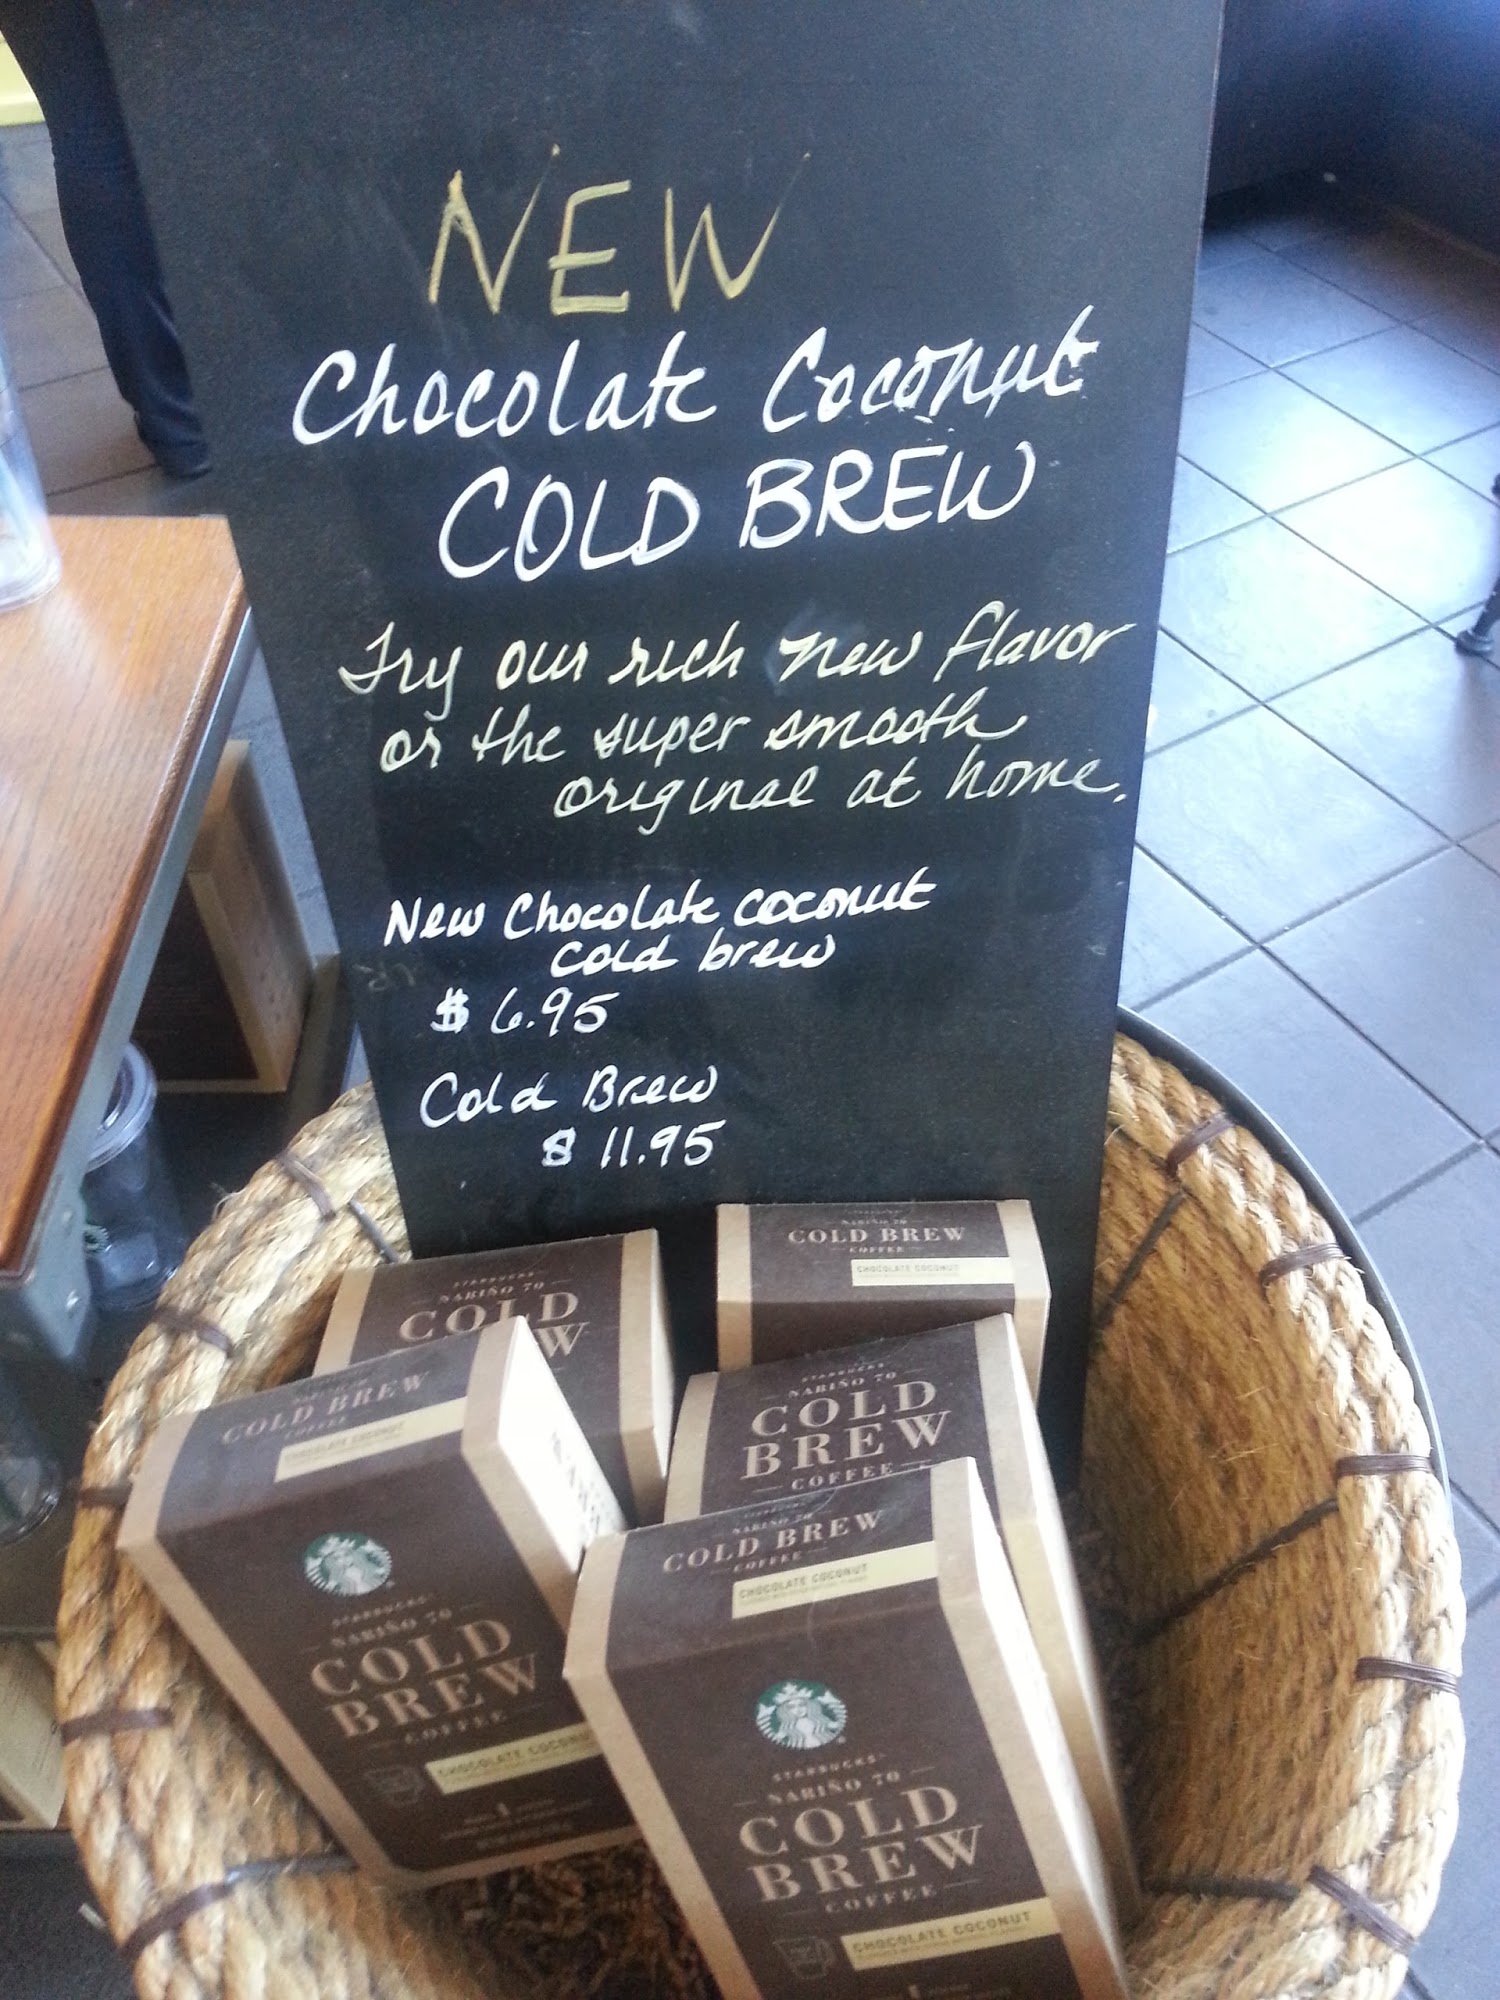 NEW
Chocolate Coconut
COLD BREW
Try our rich new flavor
or the super smooth
original at home.
New Chocolate coconut
cold brew
$ 6.95
Cold Brew
$ 11.95
NARIÑO 70
COLD BREW
COFFEE
CHOCOLATE COCONUT
STARBUCKS
NARIÑO 70
COLD
STARBUCKS
NARIÑO 70
COLD
BREW
COFFEE
COLD BREW
COFFEE
CHOCOLATE COCONUT
STARBUCKS
NARIÑO 70
COLD
BREW
COFFEE
CHOCOLATE
1
NARIÑO 70
COLD BREW
COFFEE
CHOCOLATE COCONUT
STARBUCKS
NARIÑO 70
COLD
BREW
COFFEE
CHOCOLATE COCONUT
1